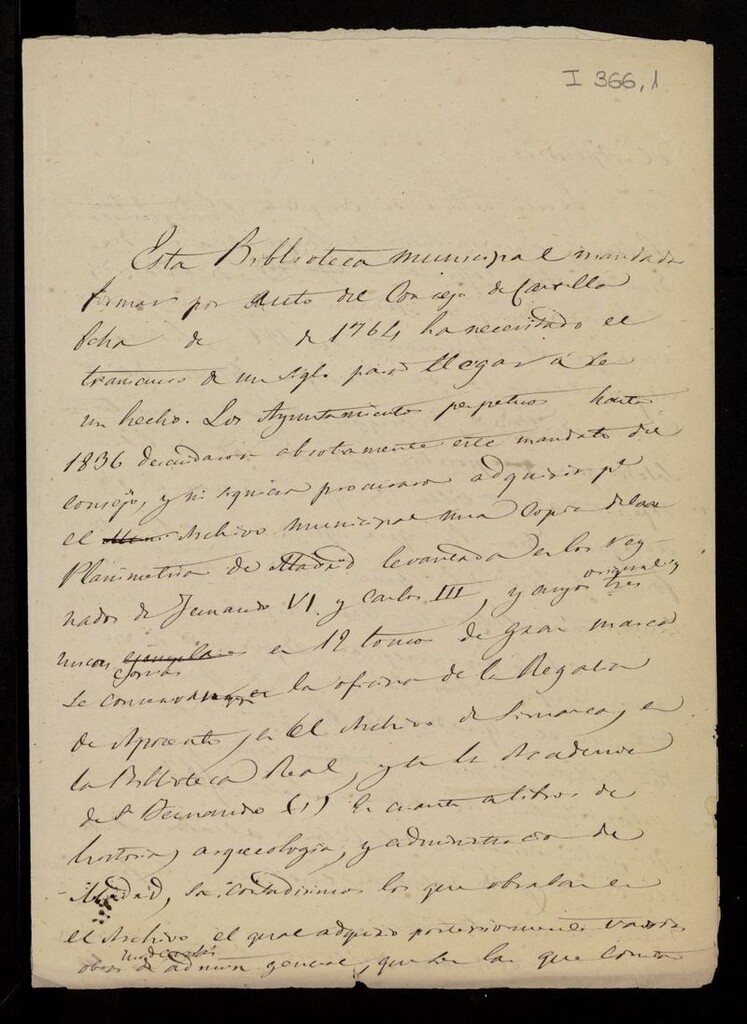 I 366,1
Esta Biblioteca municipal mandada
formar por Auto del Consejo de Castilla
fcha de de 1764 ha necesitado el
transcurso de un siglo para llegar á ser
un hecho. Los Ayuntamientos perpetuos hasta
1836 descuidaron absolutamente este mandato del
consejo, y ni siquiera procuraron adquirir pª
el Archivo municipal una copia de la
Planimetria de Madrid levantada en los rey-
nados de Fernando VI y Carlos III, y cuyos tres
originales y
unicos en 12 tomos de gran marca
copias
se conservan en la oficina de la Regalia
de Aposento, en el Archivo de Simancas, en
la Biblioteca Real, y en la Academia
de Sn Fernando (1) En cuanto a libros de
historia, arqueologia, y administracion de
Madrid, son contadisimos los que obraban en
el Archivo el qual adquirio posteriormente varias
obras modernas de admon general, que son las que